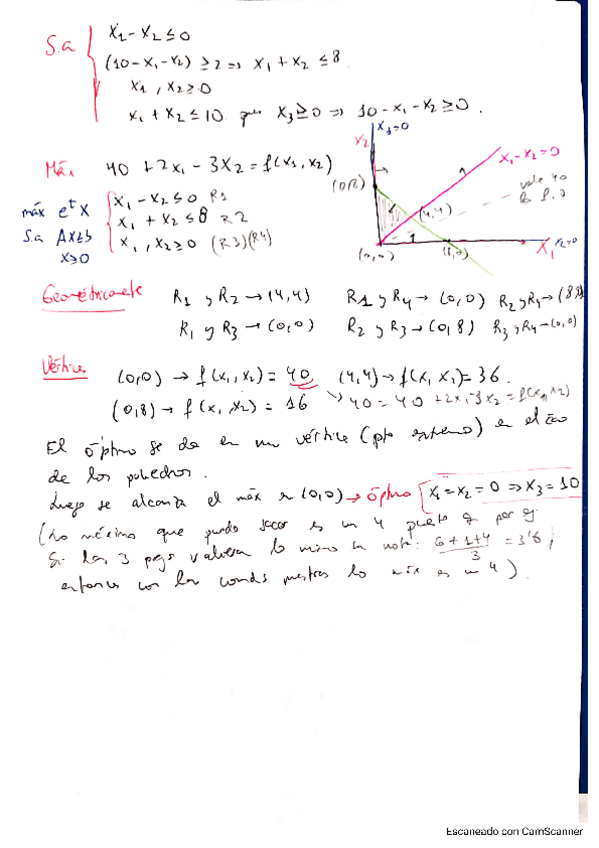 S.a
x₁ - x₂ ≤ 0
(10 - x₁ - x₂) ≥ 2 => x₁ + x₂ ≤ 8
x₁, x₂ ≥ 0
x₁ + x₂ ≤ 10 x₃ ≥ 0 => 10 - x₁ - x₂ ≥ 0.
Máx 40 + 2x₁ - 3x₂ = f(x₁, x₂)
máx eᵗx
S.a Ax≤b
x≥0
x₁ - x₂ ≤ 0 R1
x₁ + x₂ ≤ 8 R2
x₁, x₂ ≥ 0 (R3)(R4)
x₂
x₁=0
x₁-x₂=0
(0,8)
(4,4)
vale 40
la f.o
(0,0)
(8,0)
x₁
x₂=0
Geométricamente R₁ y R₂ → (4,4) R1 y R4 → (0,0) R₂ y R₄ →
R₁ y R₃ → (0,0) R₂ y R₃ → (0,8) R₃ y R₄ → (0,0)
Vértices (0,0) → f(x₁,x₂) = 40 (4,4) → f(x₁ x₂) = 36.
(0,8) → f(x₁ x₂) = 16 40 = 40 + 2x₁ - 3x₂ = f(x₁,x₂)
El óptimo se da en un vértice (pto extremo) en el caso
de los poliedros.
Luego se alcanza el máx en (0,0) → óptimo x₁ = x₂ = 0 => x₃ = 10
(Lo máximo que puedo sacar es un 4 puesto q por ej
Si las 3 valiera lo mismo la nota: (6+1+4)/3 = 3'6,
entonces con las conds nuestras lo máx es un 4).
Escaneado con CamScanner